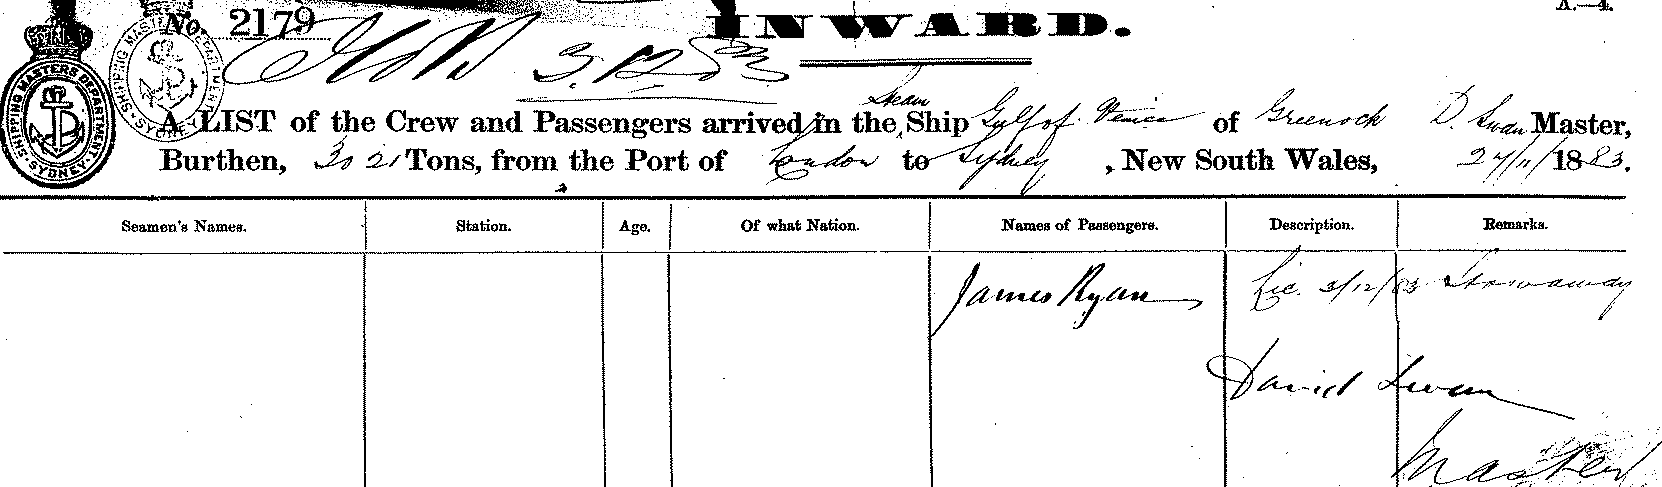 A.—4.
No. 2179
INWARD.
3.12.83
Steam
A LIST of the Crew and Passengers arrived in the Ship Gulf of Venice of Greenock D. Swan Master,
Burthen, 3021 Tons, from the Port of London to Sydney, New South Wales, 27/11/1883.
SHIPPING MASTERS DEPARTMENT SYDNEY
SHIPPING MASTERS DEPARTMENT SYDNEY
Seamen's Names. Station. Age. Of what Nation. Names of Passengers. Description. Remarks.
James Ryan Lic. 3/12/83 Stowaway
David Swan
Master